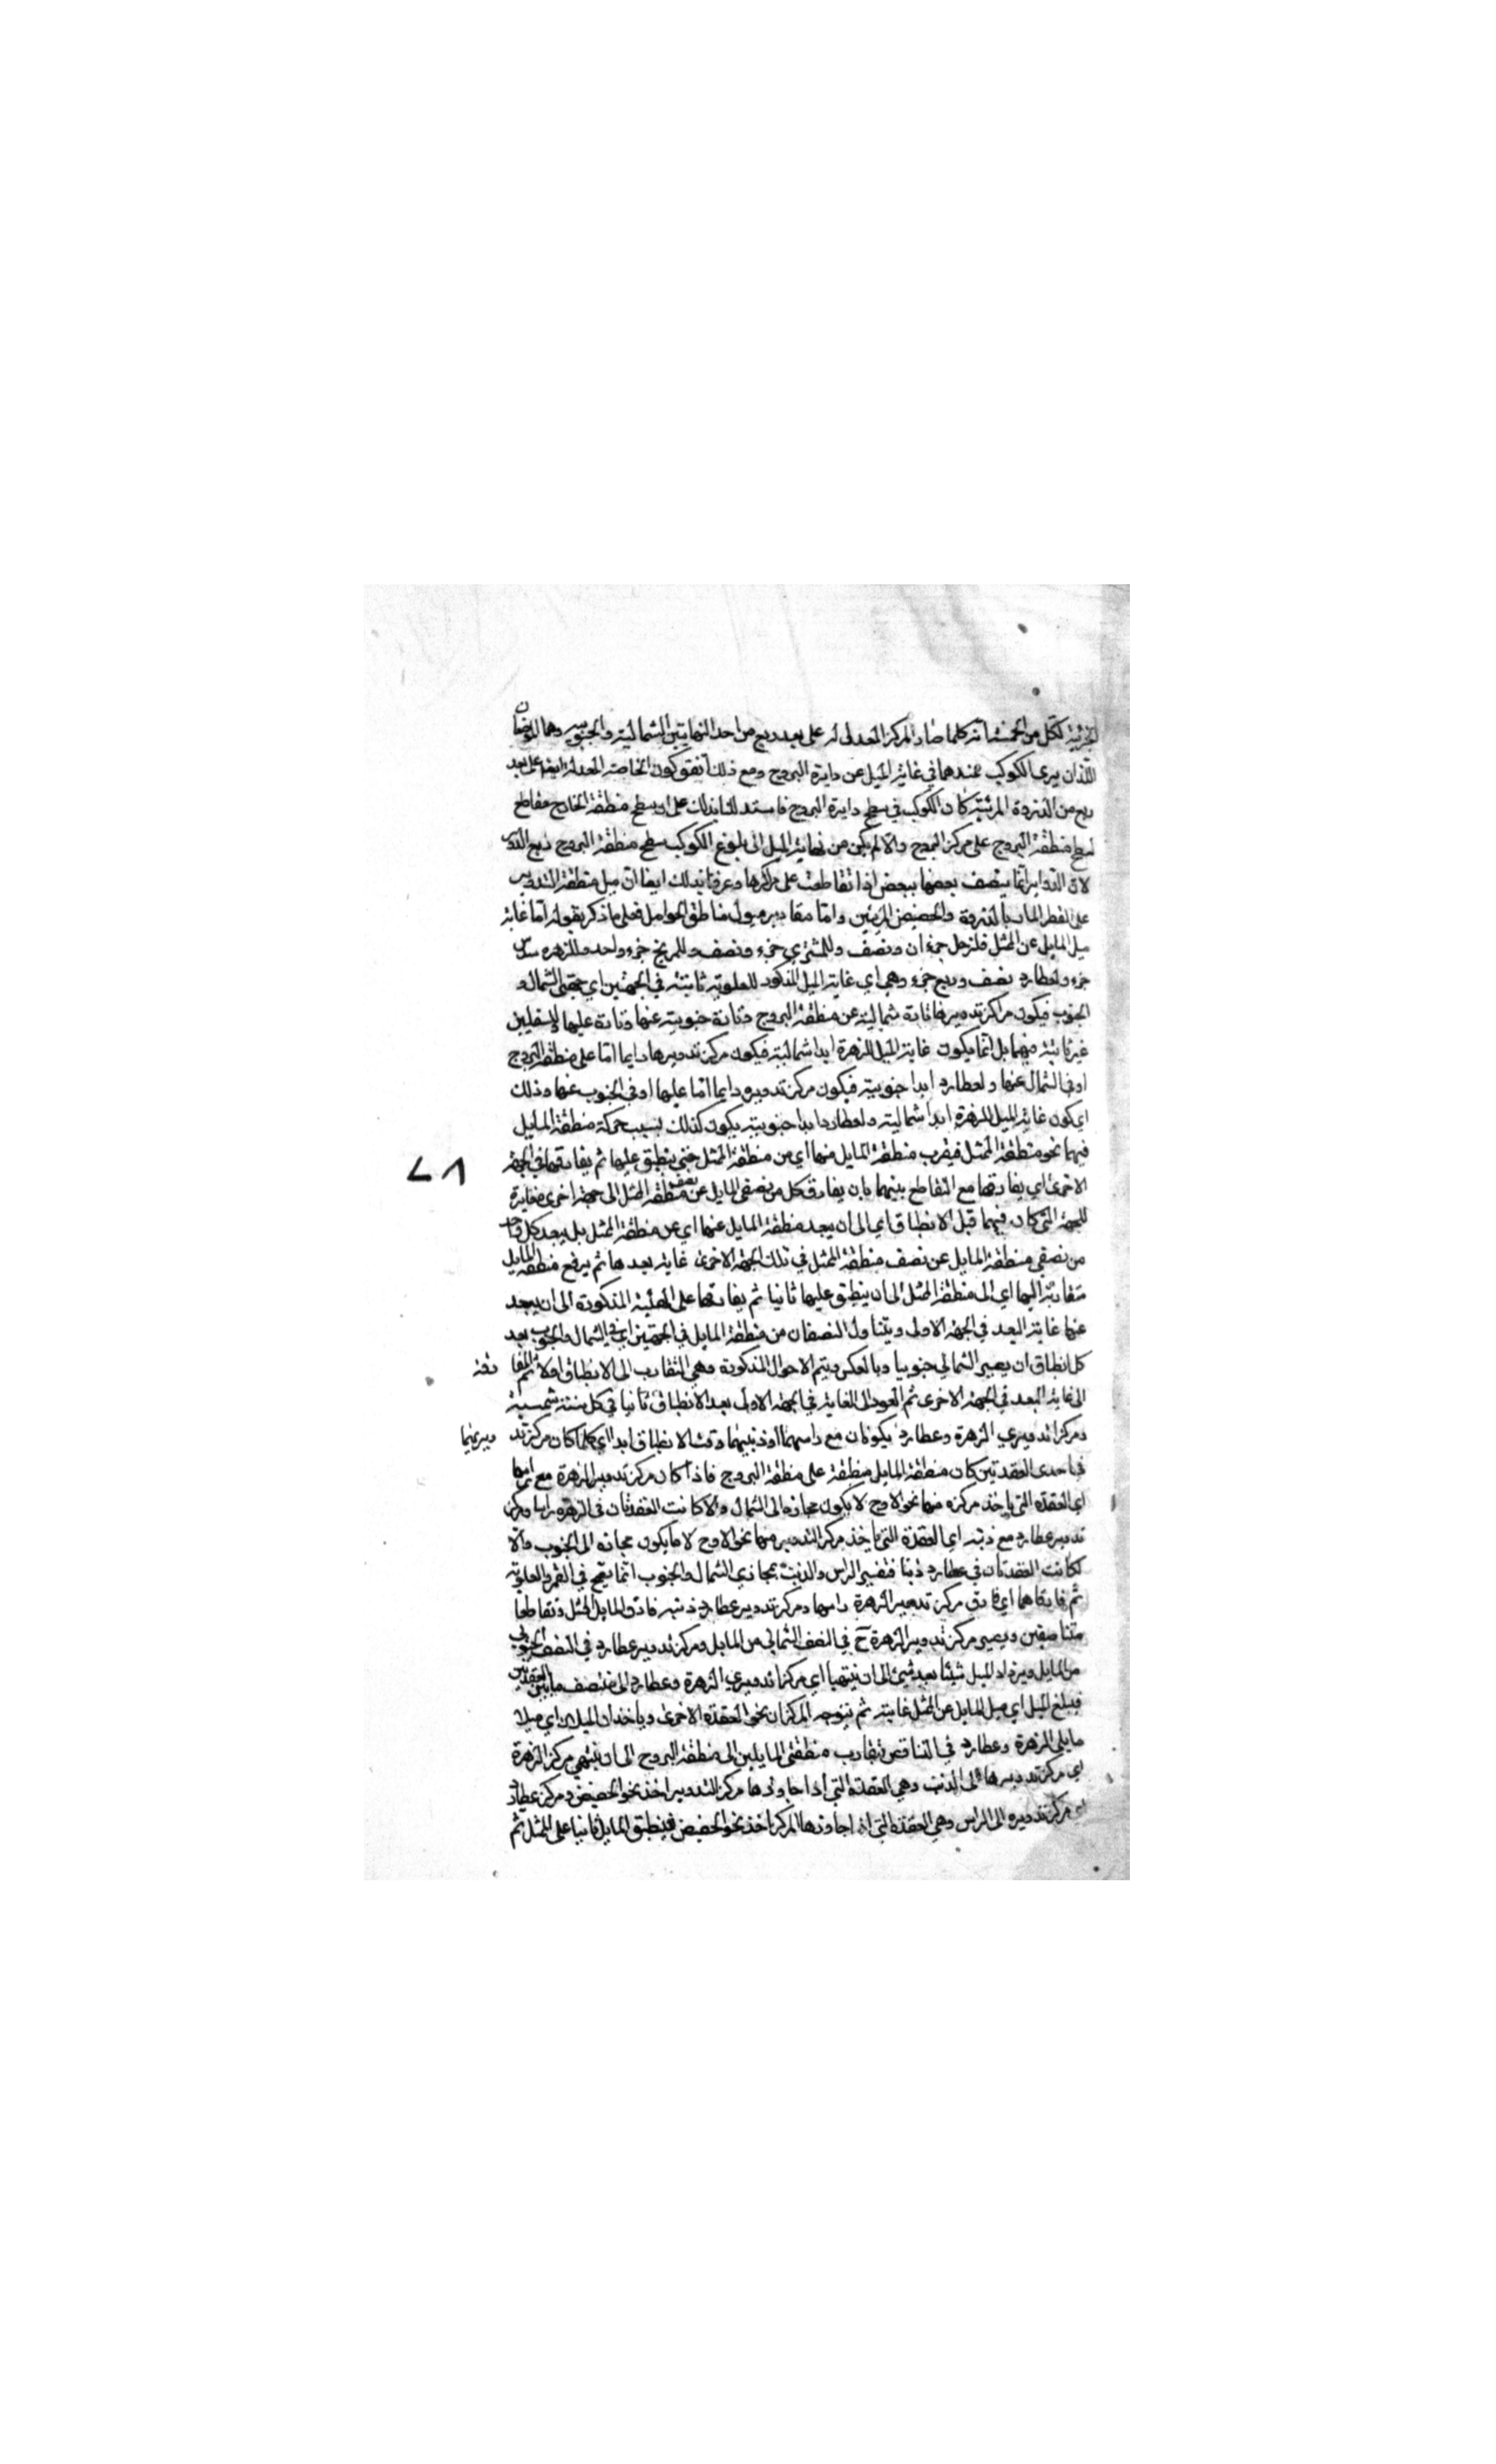 الجزئية لكل من الخمسة انه كلما صار المركز المعدل له على بعد ربع من احد النهايتين الشمالية والجنوبية وهما الموضعان
اللذان يرى الكوكب عندهما في غاية الميل عن دايرة البروج ومع ذلك اتفق كون الخاصة المعدلة ايضا على بعد
ربع من الذروة المرئية كان الكوكب في سطح دايرة البروج فاستدللنا بذلك على ان سطح منطقة الخارج مقاطع
لسطح منطقة البروج على مركز البروج والا لم يكن من نهاية الميل الى بلوغ الكوكب سطح منطقة البروج ربع الدور
لان الدواير انما ينصف بعضها ببعض اذا تقاطعت على مراكزها وعرفنا بذلك ايضا ان ميل منطقة التدوير
على القطر المار بالذروة والحضيض المرئيين واما مقادير ميول مناطق الحوامل فعلى ما ذكر بقوله اما غاية
ميل المايل عن الممثل فلزحل جزءان ونصف وللمشتري جزء ونصف وللمريخ جزء واحد وللزهره سدس
جزء ولعطارد نصف وربع جزء وهي اي غاية الميل المذكور للعلوية ثابتة في الجهتين اي جهتي الشمال و
الجنوب فيكون مراكز تدويرها تارة شمالية عن منطقة البروج وتارة جنوبية عنها وتارة عليها وللسفليين
غير ثابتة فيهما بل انما يكون غاية الميل للزهرة ابدا شمالية فيكون مركز تدويرها دايما اما على منطقة البروج
او في الشمال عنها ولعطارد ابدا جنوبية فيكون مركز تدويره دايما اما عليها او في الجنوب عنها وذلك
اي كون غاية الميل للزهرة ابدا شمالية ولعطارد ابدا جنوبية يكون كذلك بسبب حركة منطقة المايل
فيهما نحو منطقة الممثل فيقرب منطقة المايل منها اي من منطقة الممثل حتى ينطبق عليها ثم يفارقها في الجهة
٧٨
الاخرى اي يفارقها مع التقاطع بينهما بان يفارق كل من نصفي المايل عن نصف منطقة الممثل الى جهة اخرى مغايرة
للجهة التي كان فيها قبل الانطباق اي الى ان يبعد منطقة المايل عنها اي عن منطقة الممثل بل يبعد كل واحد
من نصفي منطقة المايل عن نصف منطقة الممثل في تلك الجهة الاخرى غاية بعدها ثم يرجع منطقة المايل
متقاربة اليها اي الى منطقة الممثل الى ان ينطبق عليها ثانيا ثم يفارقها على الهيئة المذكورة الى ان يبعد
عنها غاية البعد في الجهة الاولى ويتناول النصفان من منطقة المايل في الجهتين اي في الشمال والجنوب بعد
كل انطباق ان يصير الشمالي جنوبيا وبالعكس ويتم الاحوال المذكورة وهي التقارب الى الانطباق اولا ثم المفارقة
الى غاية البعد في الجهة الاخرى ثم العود الى الغاية في الجهة الاولى بعد الانطباق ثانيا في كل سنة شمسية
ومركزا تدويري الزهرة وعطارد يكونان مع راسيهما او ذنبيهما وقت الانطباق ابدا اي كلما كان مركز تدويريهما
في احدى العقدتين كان منطقة المايل منطبقة على منطقة البروج فاذا كان مركز تدوير الزهرة مع راسها
اي العقدة التي ياخذ مركزه منها نحو الاوج لا يكون مجازه الى الشمال والا كانت العقدتان في الزهرة راسا ومركز
تدوير عطارد مع ذنبه اي العقدة التي ياخذ مركز التدوير منها نحو الاوج لا ما يكون مجازه الى الجنوب والا
لكانت العقدتان في عطارد ذنبا فتفسير الراس والذنب بمجازي الشمال والجنوب انما يصح في القمر والعلوية
ثم فارقاهما اي فارق مركز تدوير الزهرة راسها ومركز تدوير عطارد ذنبه فارق المايل الممثل وتقاطعا
متناصفين ويصير مركز تدوير الزهرة ح في النصف الشمالي من المايل ومركز تدوير عطارد في النصف الجنوبي
من المايل ويزداد الميل شيئا بعد شيئ الى ان ينتهيا اي مركزا تدويري الزهرة وعطارد الى منتصف ما بين العقدتين
فيبلغ الميل اي ميل المايل عن الممثل غايته ثم يتوجه المركزان نحو العقدة الاخرى وياخذ ان الميلان اي ميلا
مايلي الزهرة وعطارد في التناقص بتقارب منطقتي المايلين الى منطقة البروج الى ان ينتهي مركز الزهرة
اي مركز تدويرها الى الذنب وهي العقدة التي اذا جاوزها مركز التدوير اخذ نحو الحضيض ومركز عطارد
اي مركز تدويره الى الراس وهي العقدة التي اذا جاوزها المركز اخذ نحو الحضيض فينطبق المايل ثانيا على الممثل ثم